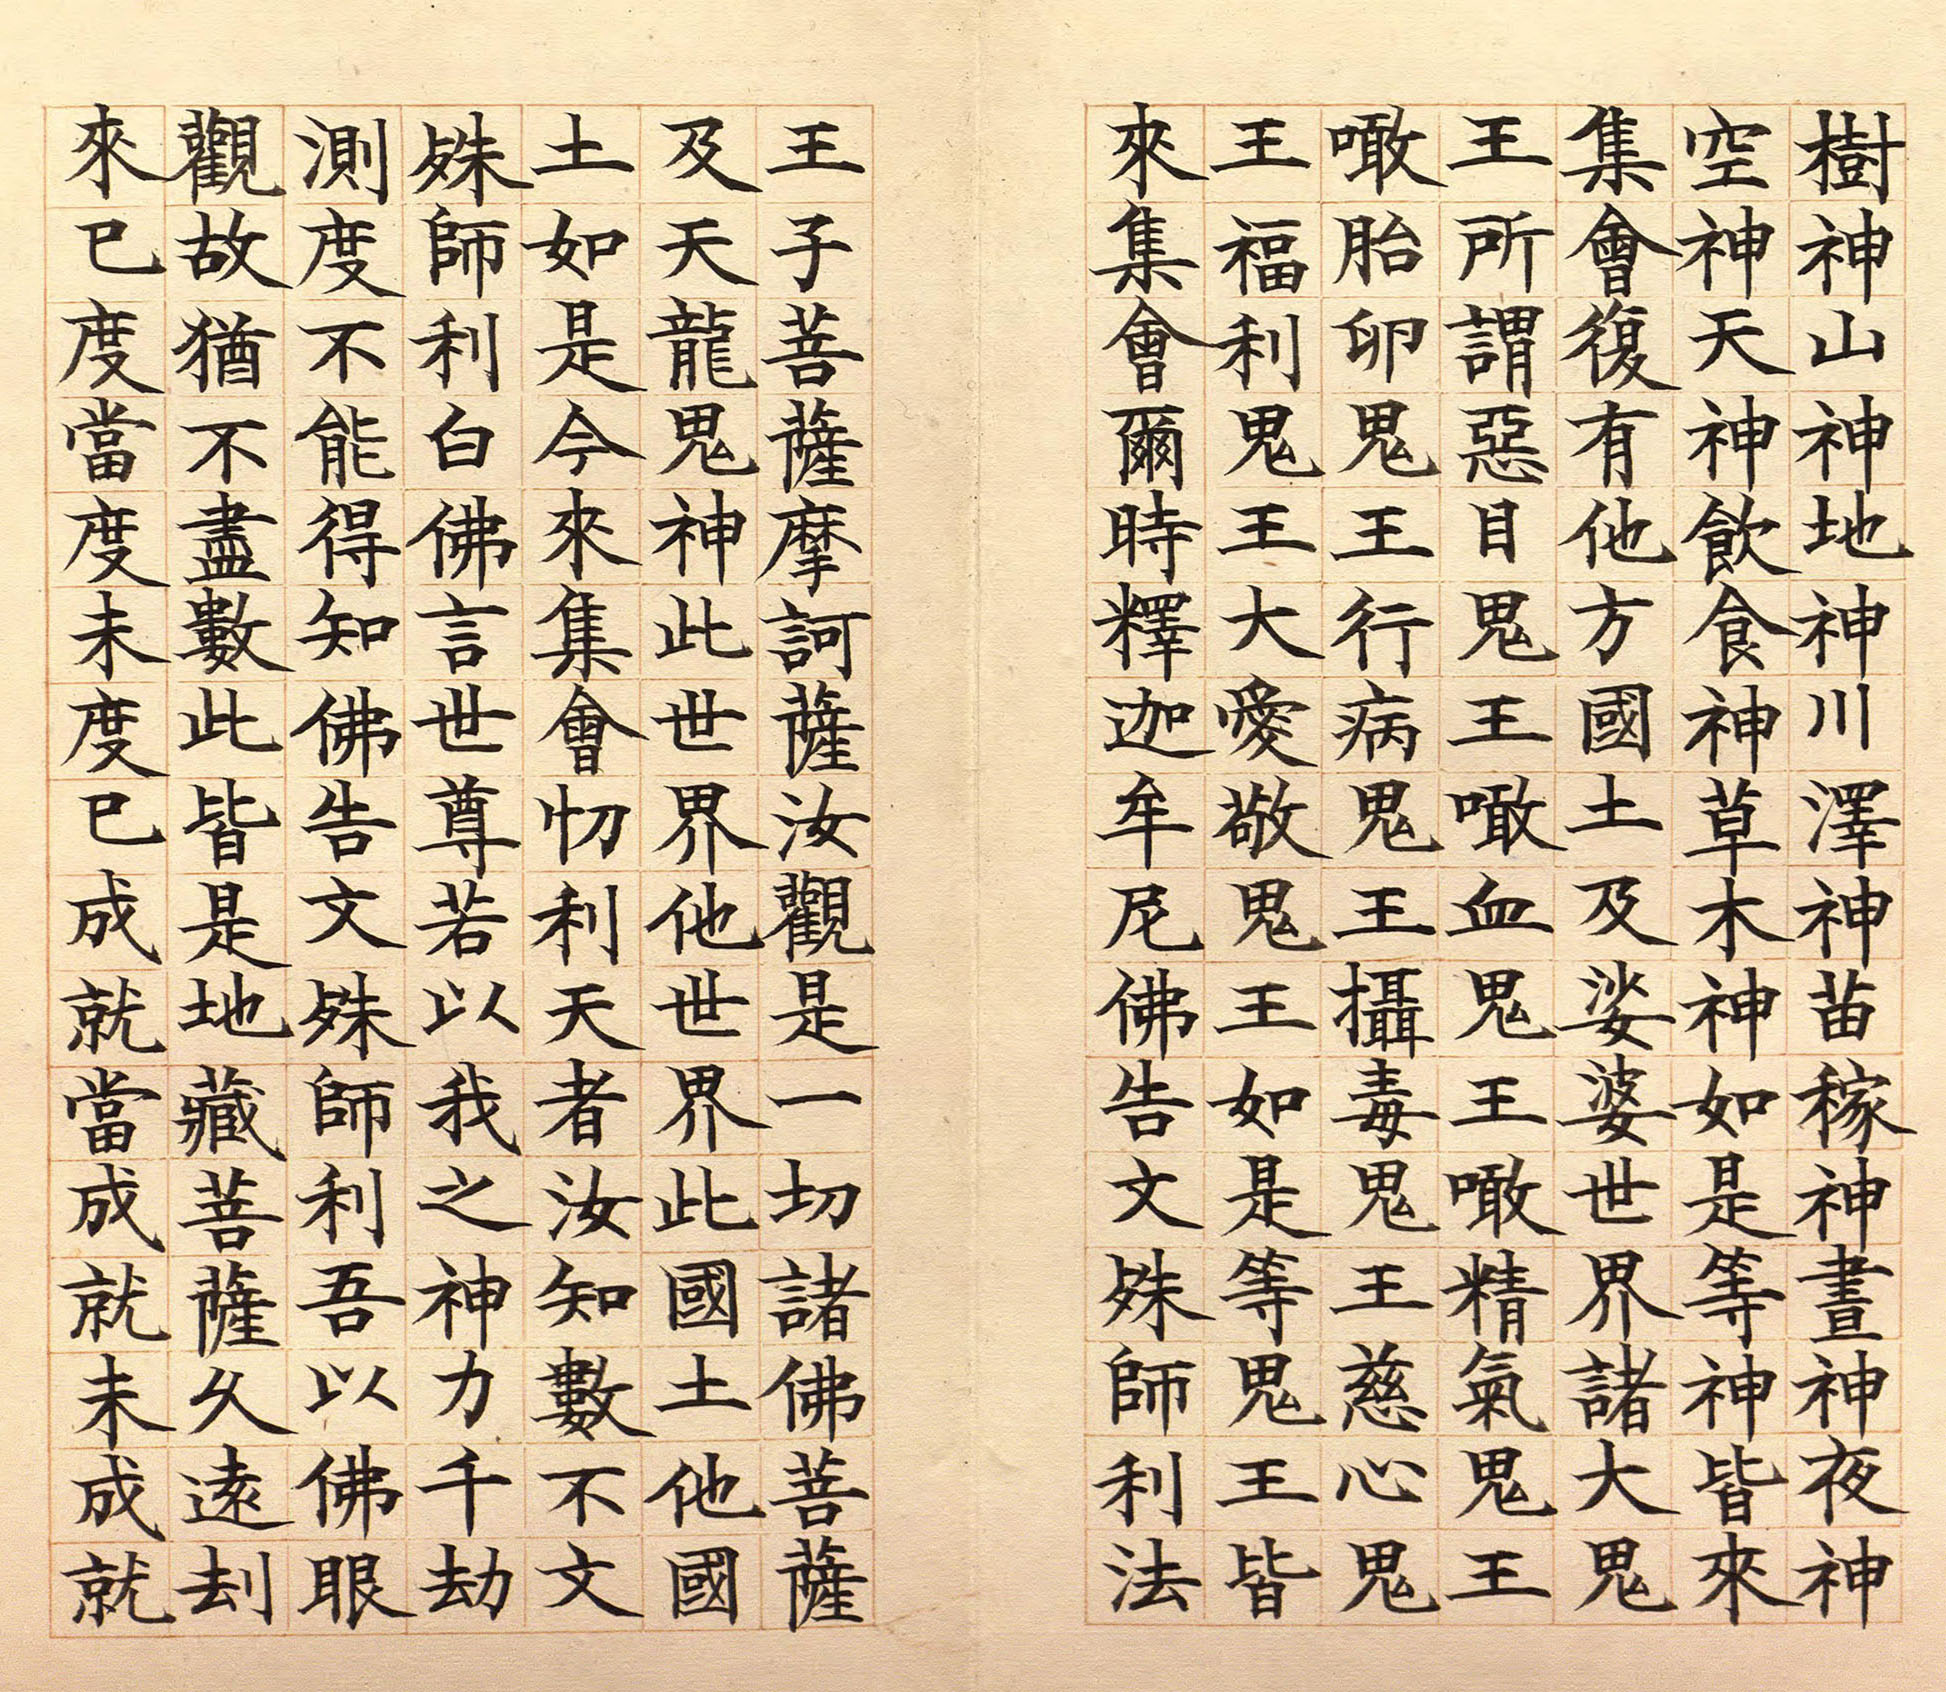 樹神山神地神川澤神苗稼神晝神夜神
空神天神飲食神草木神如是等神皆來
集會復有他方國土及娑婆世界諸大鬼
王所謂惡目鬼王噉血鬼王噉精氣鬼王
噉胎卵鬼王行病鬼王攝毒鬼王慈心鬼
王福利鬼王大愛敬鬼王如是等鬼王皆
來集會爾時釋迦牟尼佛告文殊師利法
王子菩薩摩訶薩汝觀是一切諸佛菩薩
及天龍鬼神此世界他世界此國土他國
土如是今來集會忉利天者汝知數不文
殊師利白佛言世尊若以我之神力千劫
測度不能得知佛告文殊師利吾以佛眼
觀故猶不盡數此皆是地藏菩薩久遠刦
來已度當度未度已成就當成就未成就